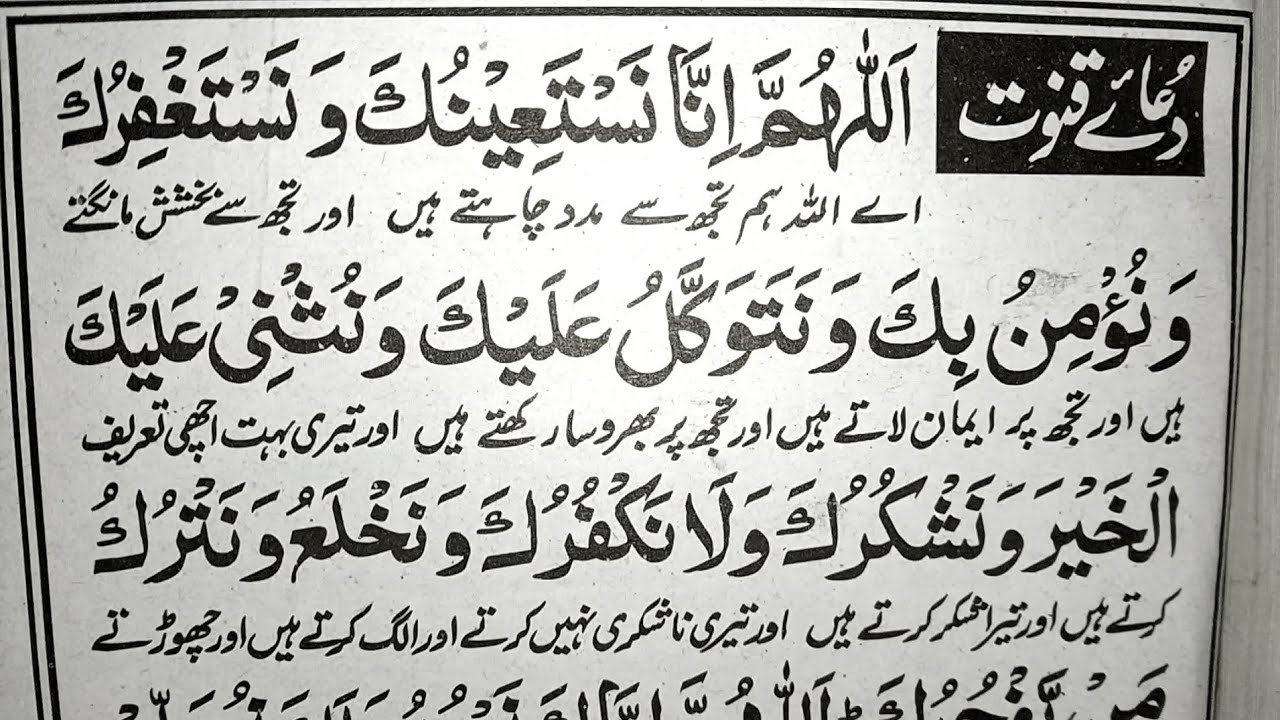 دُعائے قنوت
اَللّٰهُمَّ اِنَّا نَسْتَعِيْنُكَ وَ نَسْتَغْفِرُكَ
اے اللہ ہم تجھ سے مدد چاہتے ہیں اور تجھ سے بخشش مانگتے
وَ نُؤْمِنُ بِكَ وَ نَتَوَكَّلُ عَلَيْكَ وَ نُثْنِىْ عَلَيْكَ
ہیں اور تجھ پر ایمان لاتے ہیں اور تجھ پر بھروسا رکھتے ہیں اور تیری بہت اچھی تعریف
الْخَيْرَ وَ نَشْكُرُكَ وَلَا نَكْفُرُكَ وَ نَخْلَعُ وَ نَتْرُكُ
کرتے ہیں اور تیرا شکر کرتے ہیں اور تیری ناشکری نہیں کرتے اور الگ کرتے ہیں اور چھوڑتے
مَنْ يَّفْجُرُكَ ط اَللّٰهُمَّ اِيَّاكَ نَعْبُدُ وَلَكَ نُصَلِّىْ